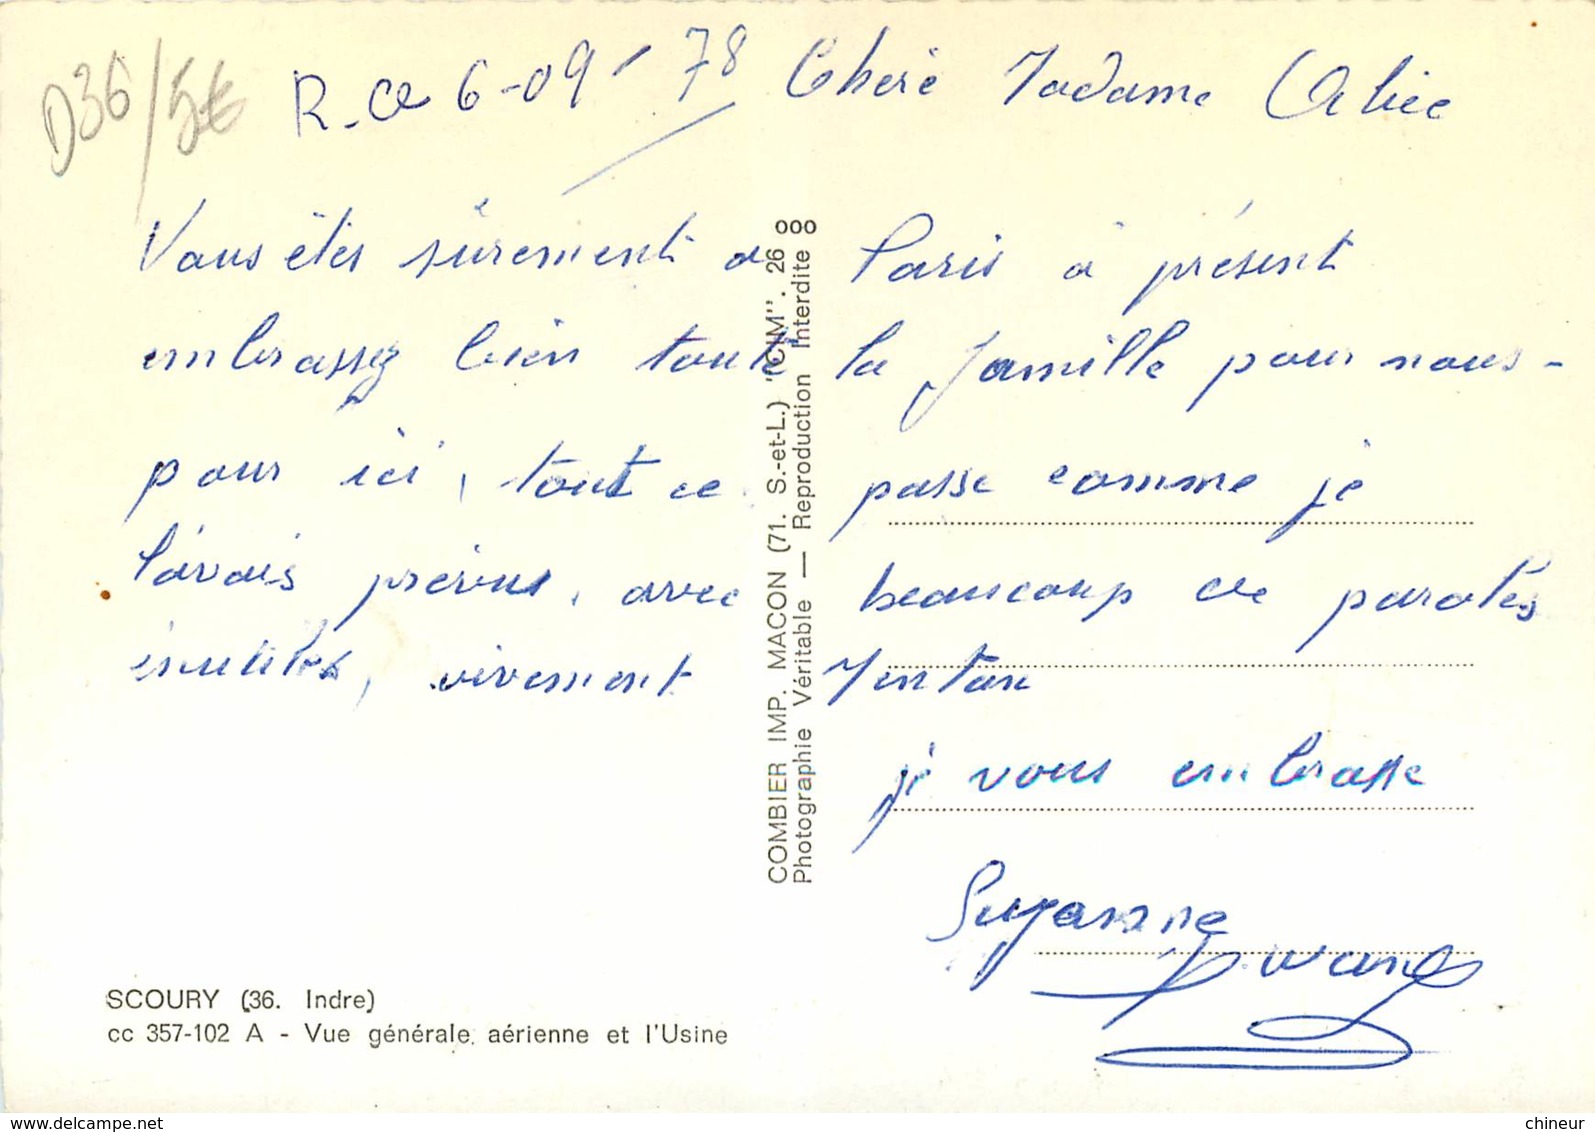 D36/5€
R. ce 6-09-78 Chère Madame
Vous êtes sûrement à Paris à présent
embrassez bien toute la famille pour nous -
pour ici, tout ce passe comme je
l'avais prévus, avec beaucoup de paroles
inutiles, vivement
je vous embrasse
Suzanne
COMBIER IMP. MACON (71. S.-et-L.) "CIM". 26 ooo
Photographie Véritable — Reproduction Interdite
SCOURY (36. Indre)
cc 357-102 A - Vue générale aérienne et l'Usine
www.delcampe.net
chineur